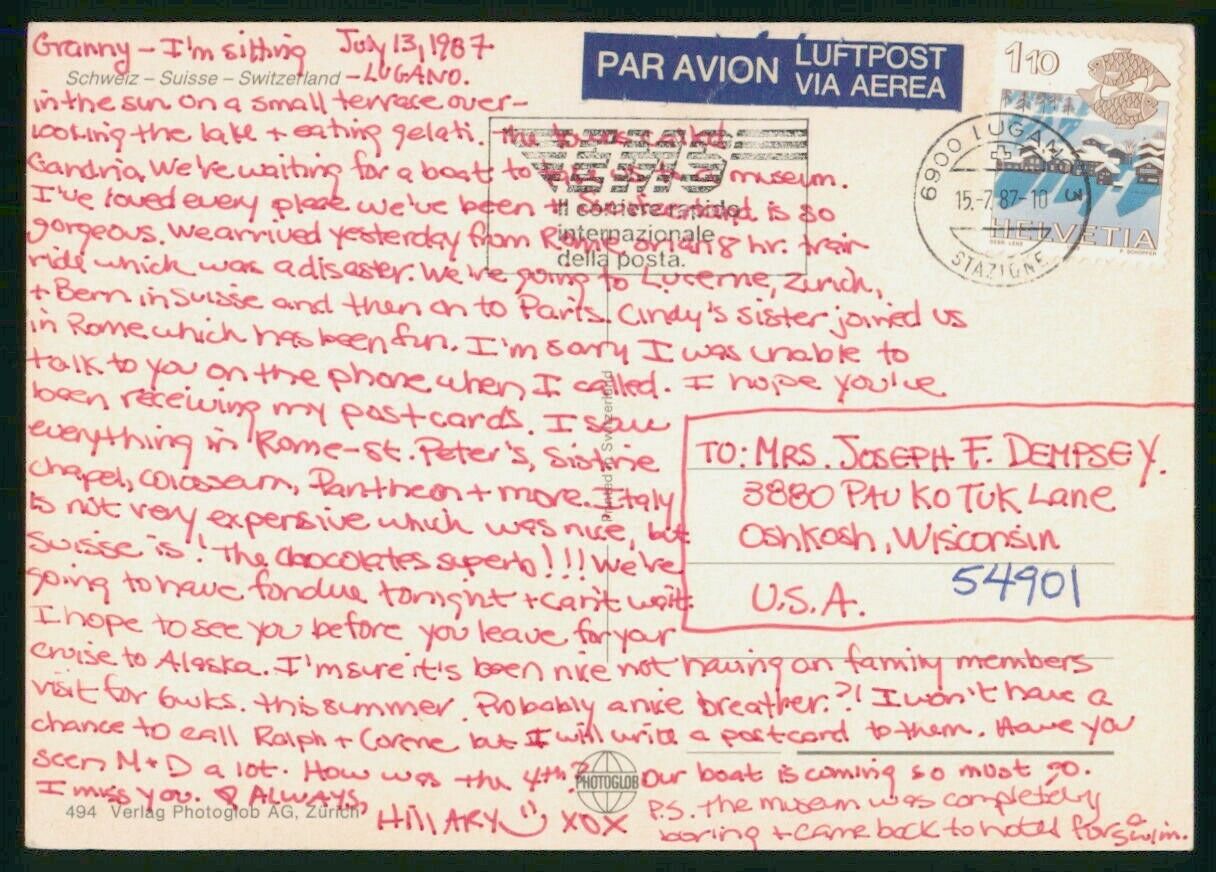 Granny - I'm sitting July 13, 1987
Schweiz – Suisse – Switzerland - LUGANO.
in the sun on a small terrace over-
looking the lake + eating gelati. The town is called
Gandria. We're waiting for a boat to museum.
I've loved every place we've been + Switzerland is so
gorgeous. We arrived yesterday from Rome on an 8 hr. train
ride which was a disaster. We're going to Lucerne, Zurich,
+ Bern in Suisse and then on to Paris. Cindy's sister joined us
in Rome which has been fun. I'm sorry I was unable to
talk to you on the phone when I called. I hope you've
been receiving my postcards. I saw
everything in Rome - St. Peter's, Sistine
chapel, colosseum, Pantheon + more. Italy
is not very expensive which was nice, but
Suisse is! The chocolates superb!!! We're
going to have fondue tonight + can't wait.
I hope to see you before you leave for your
cruise to Alaska. I'm sure it's been nice not having an family members
visit for 6wks. this summer. Probably a nice breather?! I won't have a
chance to call Ralph + Corene but I will write a postcard to them. Have you
seen M+D a lot. How was the 4th? Our boat is coming so must go.
I miss you. ALWAYS,
HILLARY XOX
P.S. The museum was completely
boring + came back to hotel for a swim.
494 Verlag Photoglob AG, Zürich
PHOTOGLOB
Printed in Switzerland
PAR AVION
LUFTPOST
VIA AEREA
EMS
Il corriere rapido
internazionale
della posta.
6900 LUGANO 3
15.-7.87-10
STAZIONE
110
HELVETIA
TO: MRS. JOSEPH F. DEMPSEY.
3880 PAU KO TUK Lane
Oshkosh, Wisconsin
54901
U.S.A.